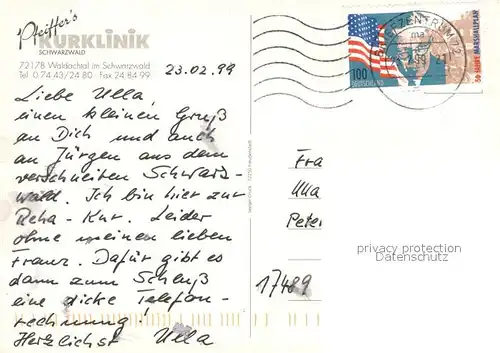 Pfeiffer's
KURKLINIK
SCHWARZWALD
72178 Waldachtal im Schwarzwald
Tel. 0 74 43/24 80 Fax 24 84 99
23.02.99
Liebe Ulla,
einen kleinen Gruß
an Dich und auch
an Jürgen aus dem
verschneiten Schwarz-
wald. Ich bin hier zur
Reha-Kur. Leider
ohne meinen lieben
Franz. Dafür gibt es
dann zum Schluß
eine dicke Telefon-
rechnung!
Herzlichst Ulla
BRIEFZENTRUM 72
100
DEUTSCHLAND
50 JAHRE MARSHALLPLAN
Fra
Ulla
Peter
17489
privacy protection
Datenschutz